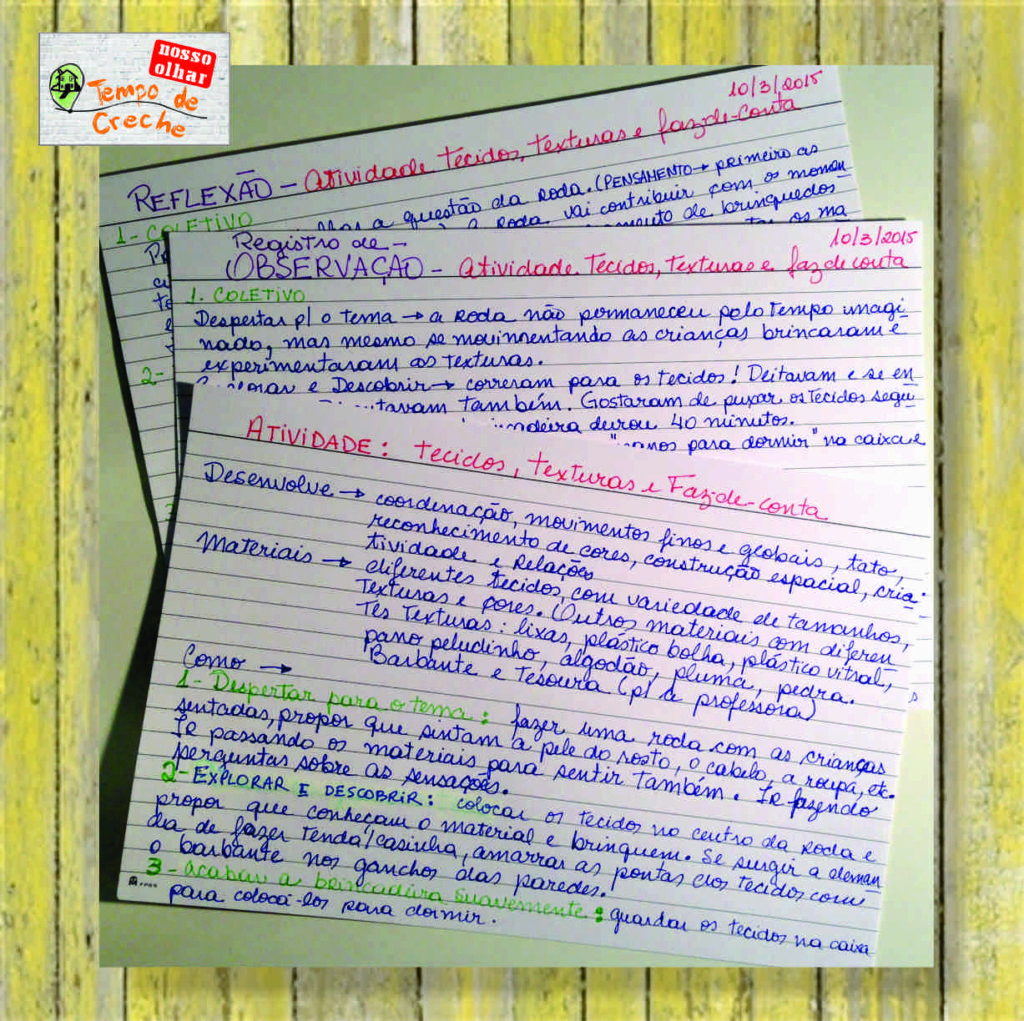 nosso
olhar
Tempo de
Creche
10/3/2015
REFLEXÃO - Atividade Tecidos, Texturas e faz-de-conta
1 - COLETIVO
a questão da Roda. (PENSAMENTO → primeiro as
a Roda vai contribuir com os momen
de brinquedos
os ma
2 -
10/3/2015
Registro de -
OBSERVAÇÃO - Atividade Tecidos, Texturas e faz de conta
1. COLETIVO
Despertar p/ o tema → a Roda não permaneceu pelo tempo imagi
nado, mas mesmo se movimentando as crianças brincaram e
experimentaram as texturas.
e Descobrir → correram para os tecidos! Deitavam e se en
também. Gostaram de puxar os tecidos segu
durou 40 minutos.
para dormir" na caixa e
ATIVIDADE: Tecidos, Texturas e Faz-de-conta
Desenvolve → coordenação, movimentos finos e globais, tato,
reconhecimento de cores, construção espacial, cria-
tividade e Relações
Materiais → diferentes tecidos, com variedade de tamanhos,
Texturas e cores. (Outros materiais com diferen
Tes Texturas: lixas, plástico bolha, plástico vitral,
pano peludinho, algodão, pluma, pedra.
Barbante e Tesoura (p/ a professora)
Como →
1 - Despertar para o tema: fazer uma roda com as crianças
sentadas, propor que sintam a pele do rosto, o cabelo, a roupa, etc.
Ir passando os materiais para sentir também. Ir fazendo
perguntas sobre as sensações.
2 - EXPLORAR E DESCOBRIR: colocar os tecidos no centro da Roda e
propor que conheçam o material e brinquem. Se surgir a deman
da de fazer Tenda/casinha, amarrar as pontas dos tecidos com
o barbante nos ganchos das paredes.
3 - Acabar a brincadeira suavemente: guardar os tecidos na caixa
para colocá-los para dormir.